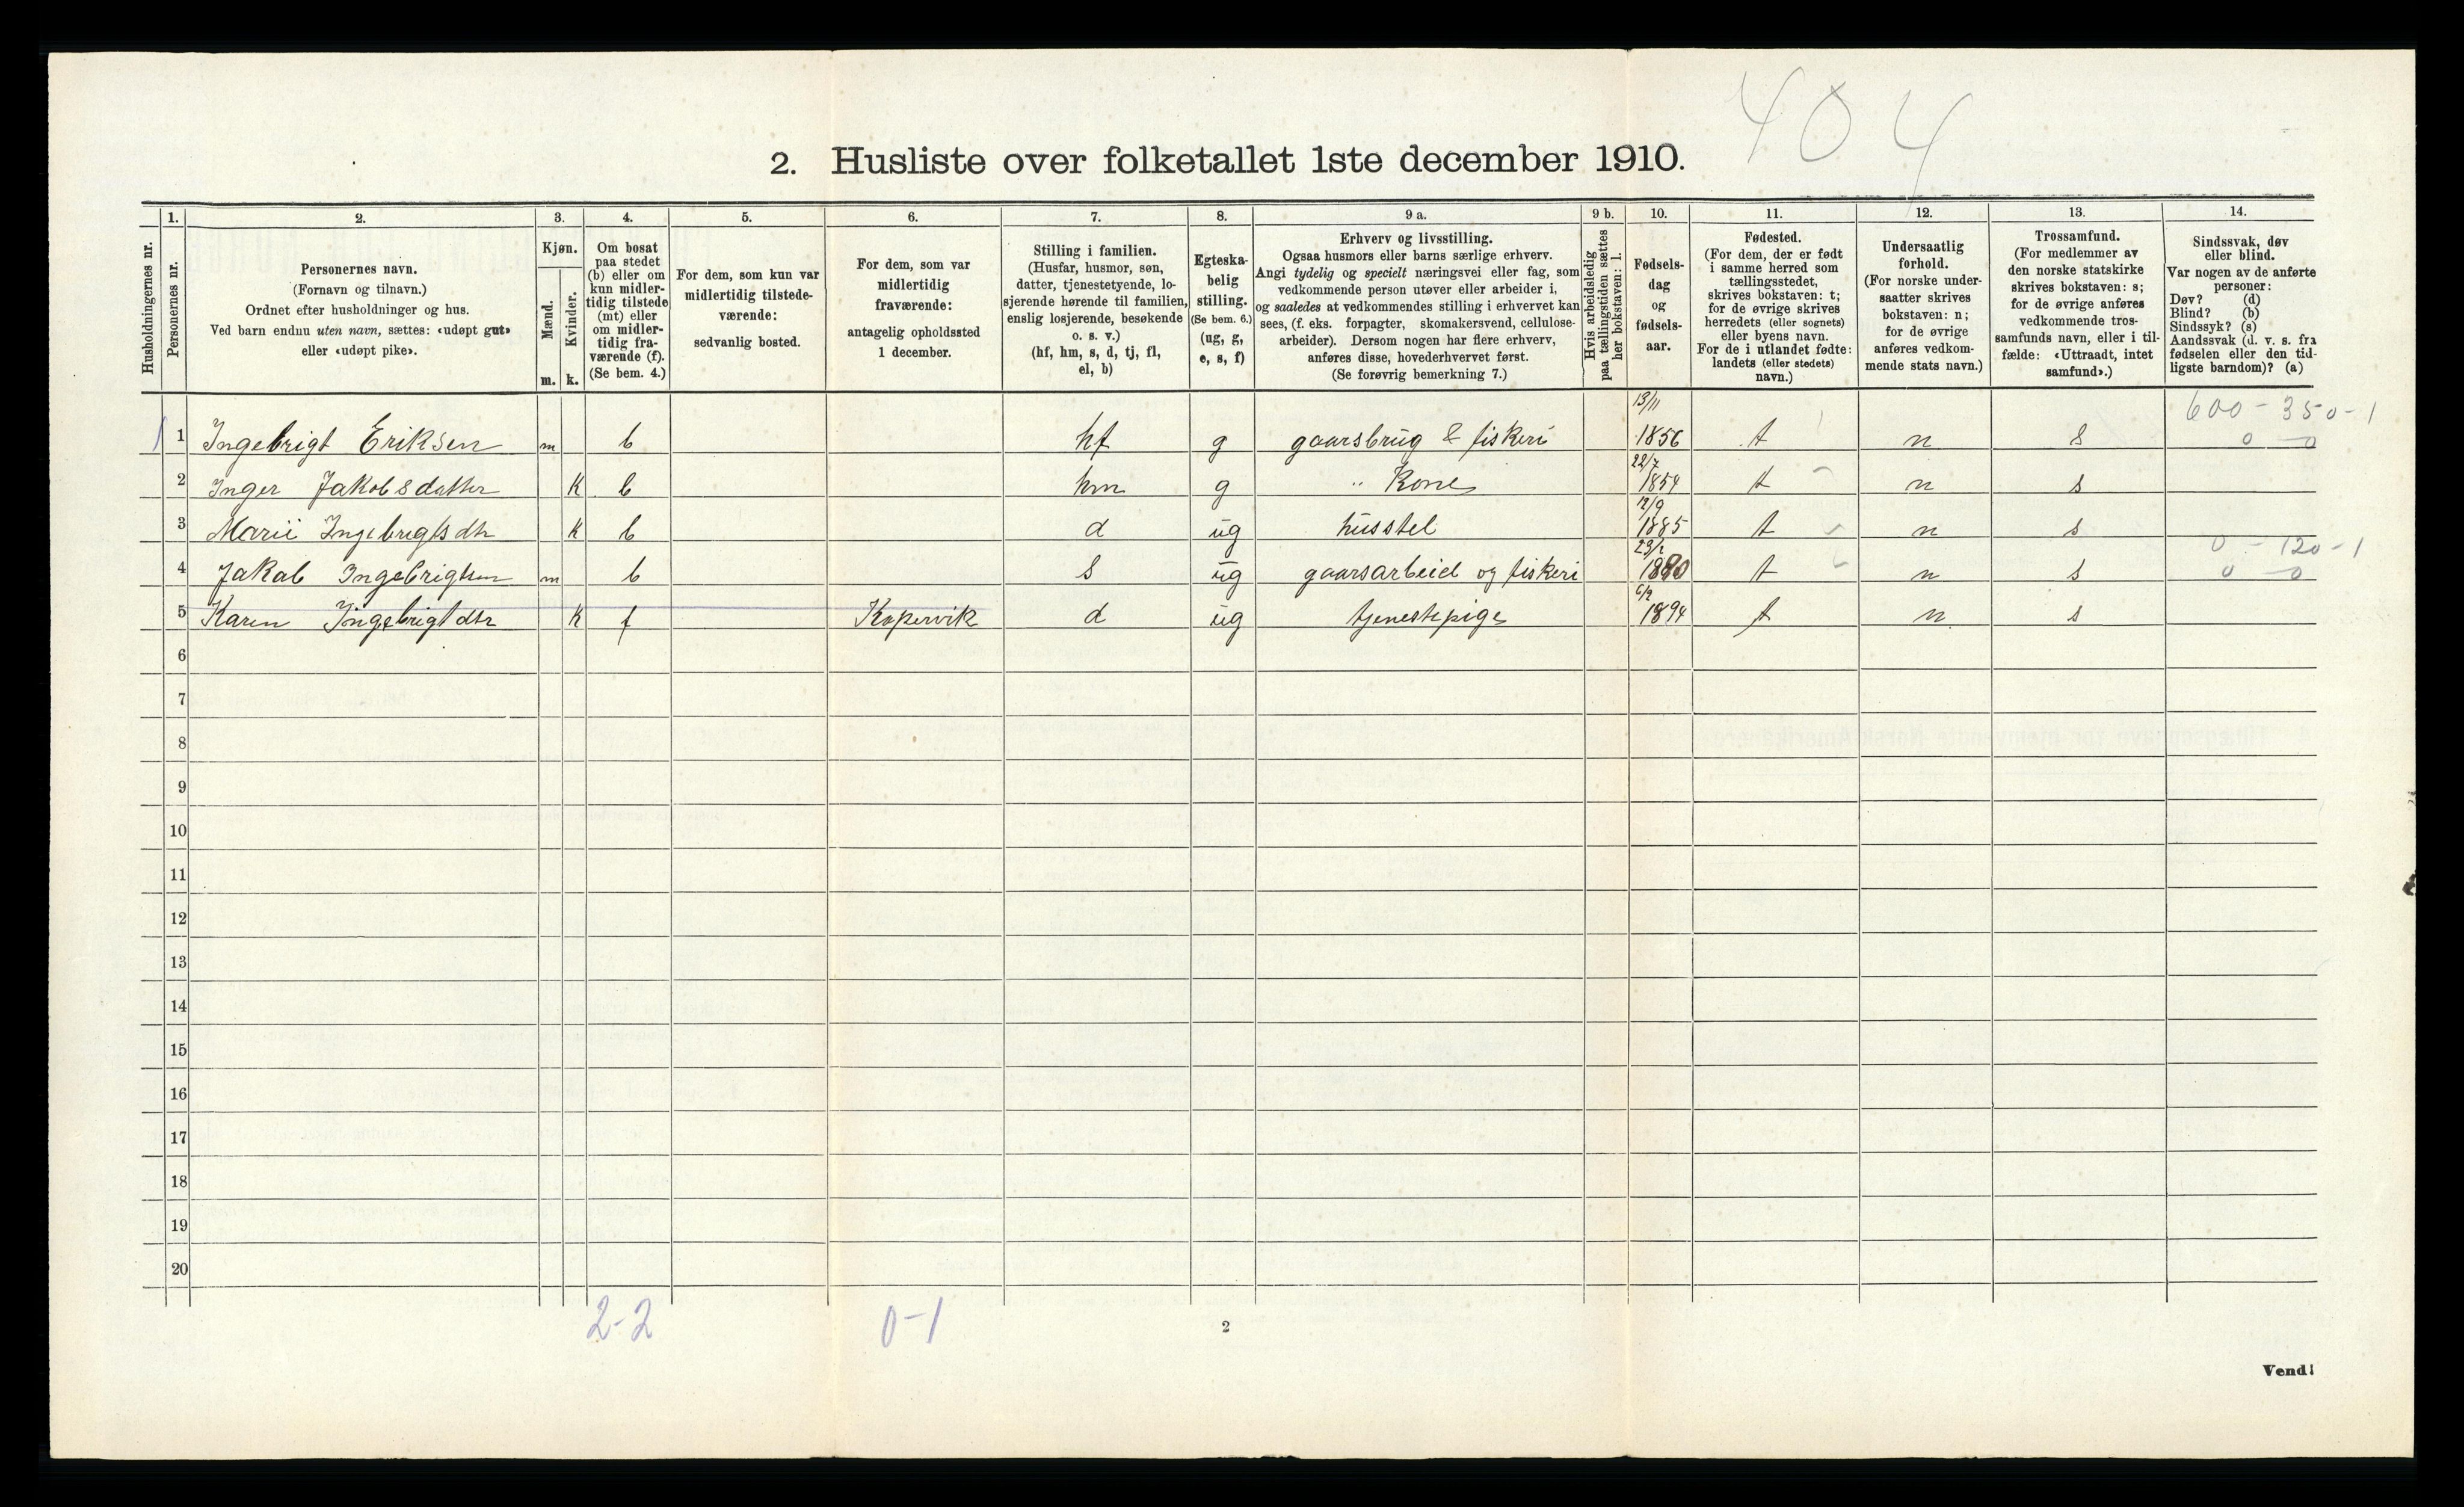 404
2. Husliste over folketallet 1ste december 1910.
Husholdningernes nr.
1.
Personernes nr.
2.
Personernes navn.
(Fornavn og tilnavn.)
Ordnet efter husholdninger og hus.
Ved barn endnu uten navn, sættes: «udøpt gut»
eller «udøpt pike».
3.
Kjøn.
Mænd.
Kvinder.
m. k.
4.
Om bosat
paa stedet
(b) eller om
kun midler-
tidig tilstede
(mt) eller
om midler-
tidig fra-
værende (f).
(Se bem. 4.)
5.
For dem, som kun var
midlertidig tilstede-
værende:
sedvanlig bosted.
6.
For dem, som var
midlertidig
fraværende:
antagelig opholdssted
1 december.
7.
Stilling i familien.
(Husfar, husmor, søn,
datter, tjenestetyende, lo-
sjerende hørende til familien,
enslig losjerende, besøkende
o. s. v.)
(hf, hm, s, d, tj, fl,
el, b)
8.
Egteska-
belig
stilling.
(Se bem. 6.)
(ug, g,
e, s, f)
9 a.
Erhverv og livsstilling.
Ogsaa husmors eller barns særlige erhverv.
Angi tydelig og specielt næringsvei eller fag, som
vedkommende person utøver eller arbeider i,
og saaledes at vedkommendes stilling i erhvervet kan
sees, (f. eks. forpagter, skomakersvend, cellulose-
arbeider). Dersom nogen har flere erhverv,
anføres disse, hovederhvervet først.
(Se forøvrig bemerkning 7.)
9 b.
Hvis arbeidsledig
paa tællingstiden sættes
her bokstaven: l.
10.
Fødsels-
dag
og
fødsels-
aar.
11.
Fødested.
(For dem, der er født
i samme herred som
tællingsstedet,
skrives bokstaven: t;
for de øvrige skrives
herredets (eller sognets)
eller byens navn.
For de i utlandet fødte:
landets (eller stedets)
navn.)
12.
Undersaatlig
forhold.
(For norske under-
saatter skrives
bokstaven: n;
for de øvrige
anføres vedkom-
mende stats navn.)
13.
Trossamfund.
(For medlemmer av
den norske statskirke
skrives bokstaven: s;
for de øvrige anføres
vedkommende tros-
samfunds navn, eller i til-
fælde: «Uttraadt, intet
samfund».)
14.
Sindssvak, døv
eller blind.
Var nogen av de anførte
personer:
Døv? (d)
Blind? (b)
Sindssyk? (s)
Aandssvak (d. v. s. fra
fødselen eller den tid-
ligste barndom)? (a)
13/11 600 - 350 - 1
1 Ingebrigt Eriksen m b hf g gaarsbrug & fiskeri 1856 t n s 0 - 0
22/7
2 Inger Jakobsdatter K b hm g " Kone 1854 t n s
12/9
3 Marii Ingebrigtsdtr K b d ug husstel 1885 t n s
0 - 120 - 1
4 Jakob Ingebrigtsen m b s ug gaarsarbeid og fiskeri 1890 t n s 0 - 0
6/2
5 Karen Ingebrigtdtr K f Kopervik d ug tjenestepige 1894 t n s
6
7
8
9
10
11
12
13
14
15
16
17
18
19
20
2-2 0-1
2
Vend!